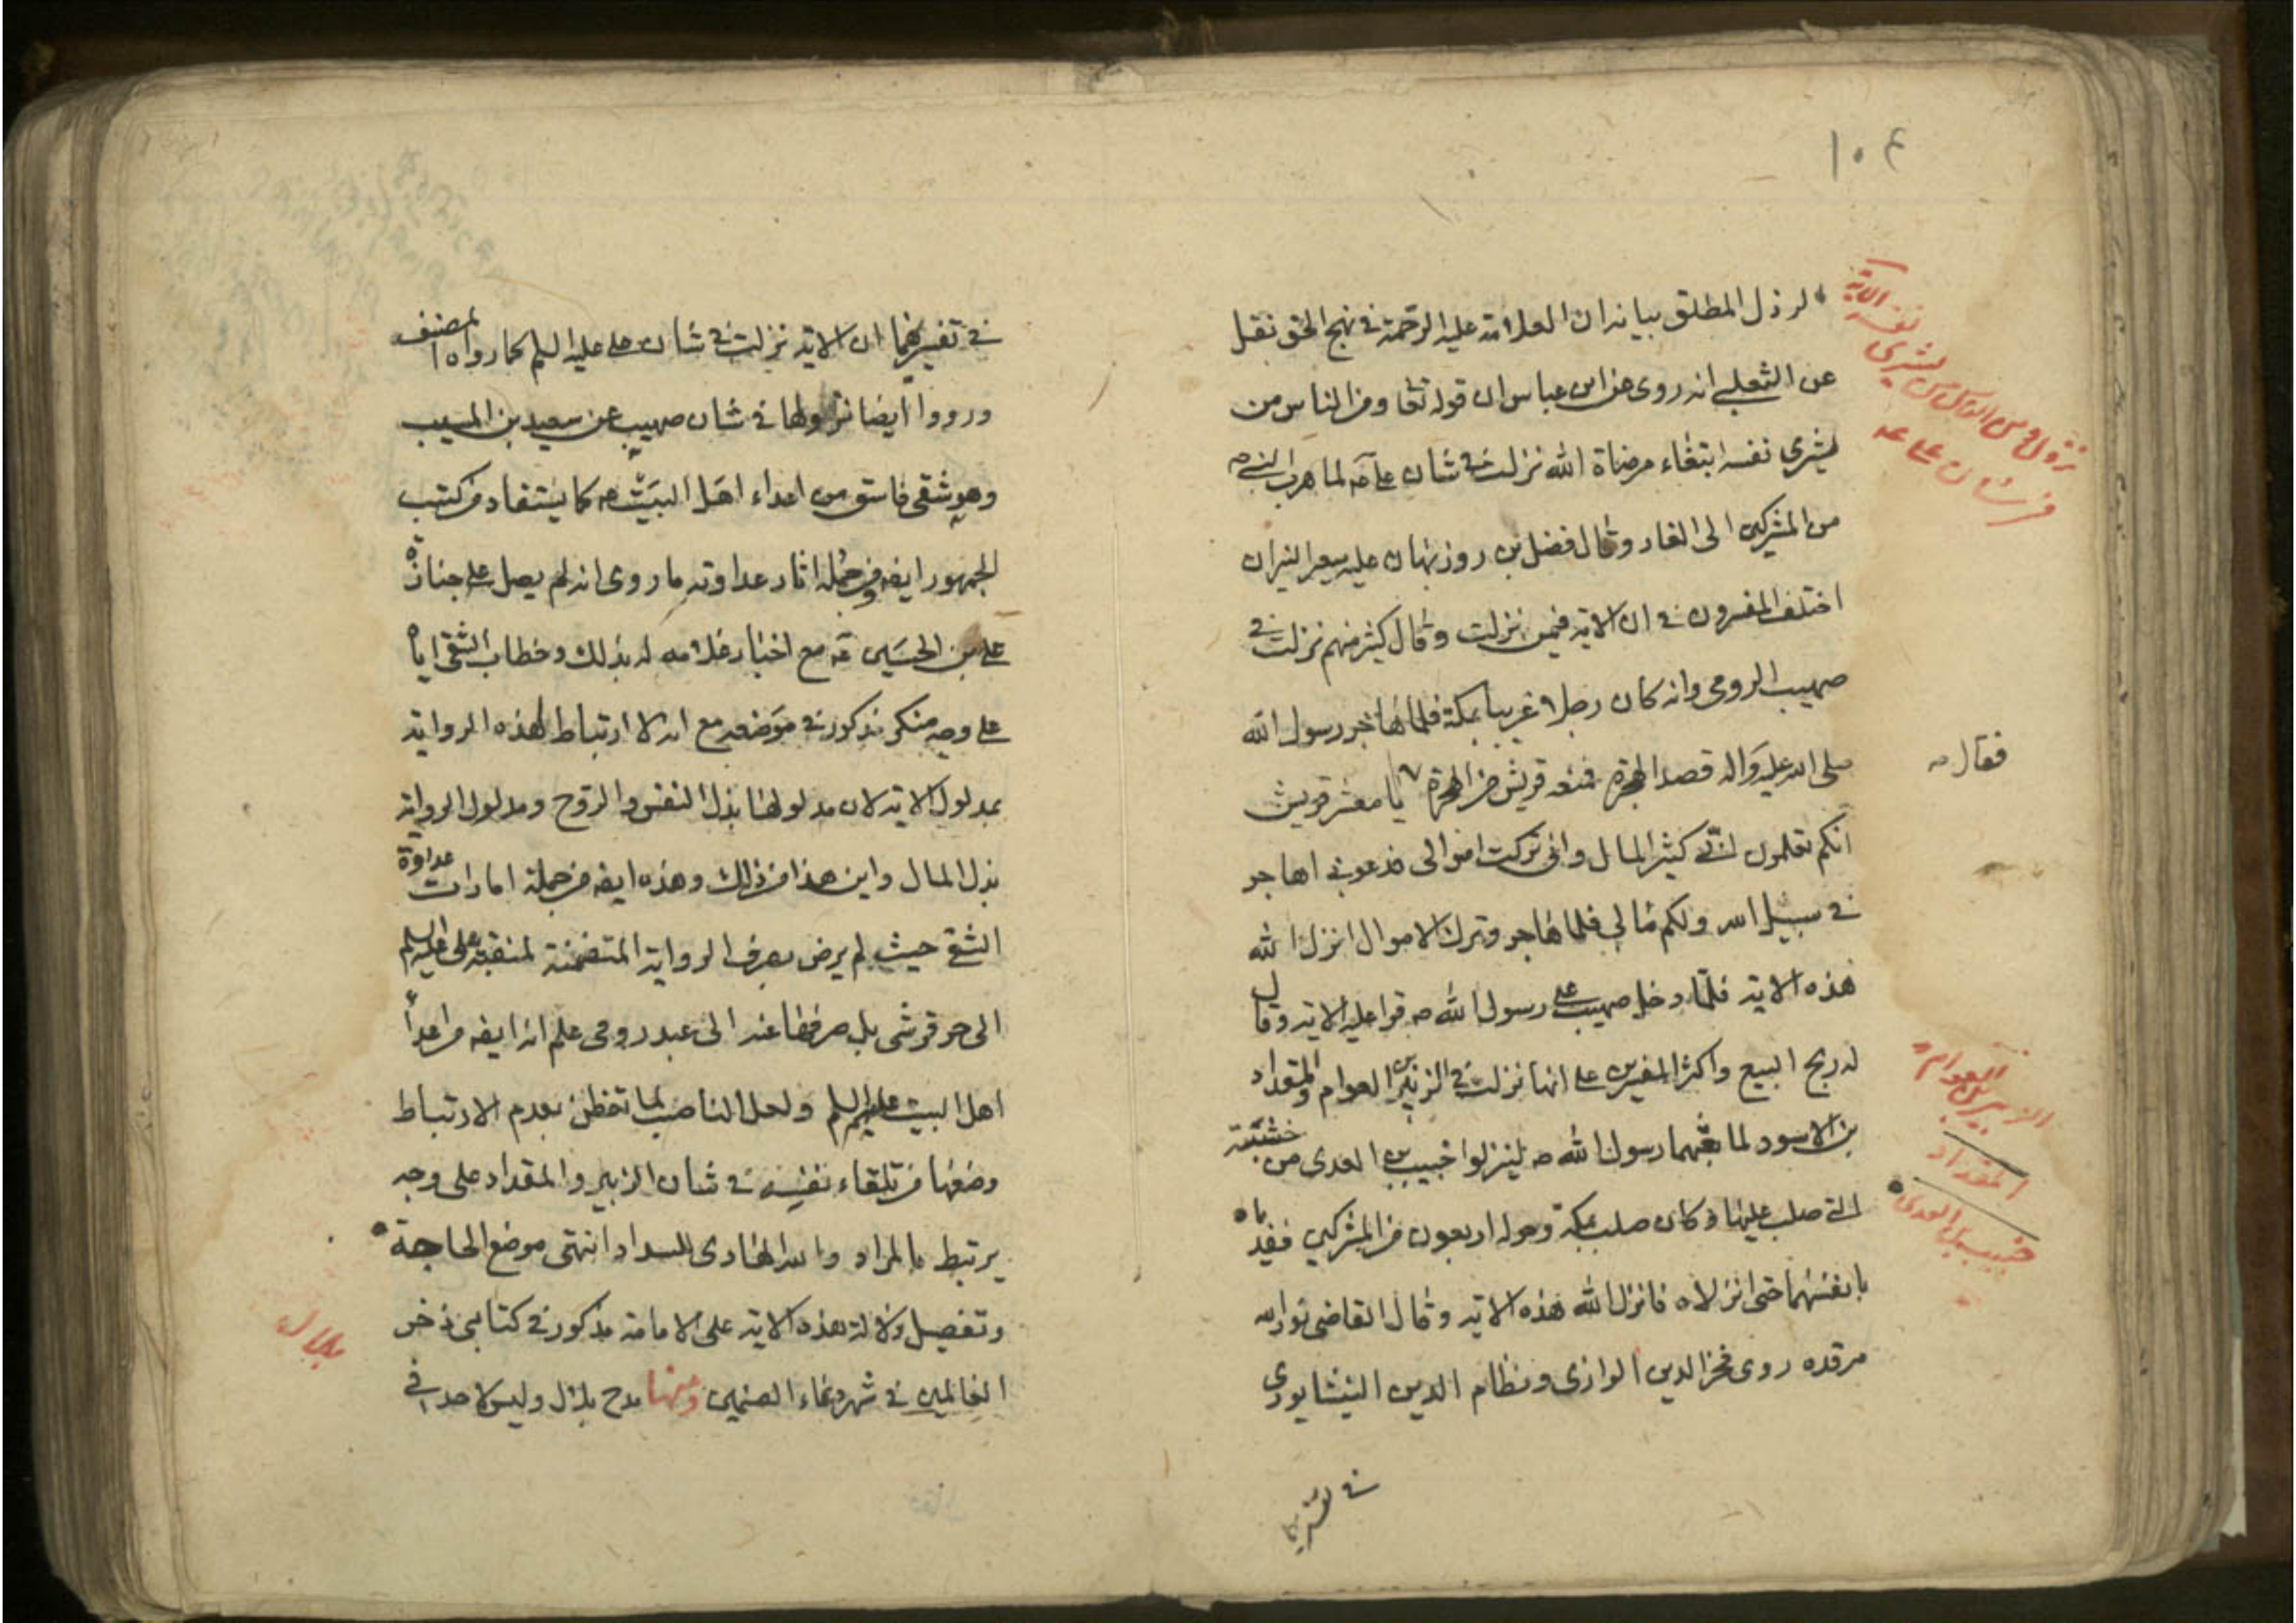 ١٠٤
الرذل المطلق بيانه ان العلامة عليه الرحمة في نهج الحق نقل
عن الثعلبي انه روى عن ابن عباس ان قوله تعا ومن الناس من
يشرى نفسه ابتغاء مرضاة الله نزلت في شان علي لما هرب النبي ص
من المشركين الى الغار وقال فضل بن روزبهان عليه سعير النيران
اختلف المفسرون في ان الاية فيمن نزلت وقال كثير منهم نزلت في
صهيب الرومى وانه كان رجلا غريبا بمكة فلما هاجر رسول الله
صلى الله عليه واله قصد الهجرة فمنعه قريش من الهجرة يا معشر قريش
فقال
انكم تعلمون اني كثير المال وانى تركت اموالى فدعونى اهاجر
في سبيل الله ولكم مالي فلما هاجر وترك الاموال انزل الله
هذه الاية فلما دخل صهيب على رسول الله ص قرا عليه الاية وقال
له ربح البيع واكثر المفسرين على انها نزلت في الزبير بن العوام والمقداد
بن الاسود لما بعثهما رسول الله ص لينزلوا خبيب بن العدى من خشبته
التى صلب عليها وكان صلب بمكة وحوله اربعون من المشركين ففدياه
بانفسهما حتى انزلاه فانزل الله هذه الاية وقال القاضى نور الله
مرقده روى فخر الدين الرازى ونظام الدين النيشابورى
في تفسيريهما
نزول ومن الناس من يشرى نفسه الآية
في شان على ع
الزبير بن العوام
المقداد
خبيب بن العدى
في تفسيريهما ان الاية نزلت في شان على عليه السلم كما رواه المصنف
ورووا ايضا نزولها في شان صهيب عن سعيد بن المسيب
وهو شقى فاسق من اعداء اهل البيت كما يستفاد من كتب
الجمهور ايضه ومن جملة اثار عداوته ما روى انه لم يصل على جنازة
على بن الحسين مع اخبار غلامه له بذلك وخطاب الشقى اياه
على وجه منكر مذكور في موضعه مع انه لا ارتباط لهذه الرواية
بمدلول الاية لان مدلولها بذل النفس والروح ومدلول الرواية
بذل المال واين هذا من ذلك وهذه ايضه من جملة امارات عداوة
الشقى حيث لم يرض بصرف الرواية المتضمنة لمنقبة على عليه السلم
الى حر قرشى بل صرفها عنه الى عبد رومى علم انه ايضه من اعداء
اهل البيت عليهم السلم ولعل الناصب لما تفطن بعدم الارتباط
وضعها من تلقاء نفسه في شان الزبير والمقداد على وجه
يرتبط بالمراد والله الهادى للسداد انتهى موضع الحاجة
وتفصيل دلالة هذه الاية على الامامة مذكور في كتابى ذخر
العالمين في شرح دعاء الصنمين ومنها مدح بلال وليس لاحد في
بلال